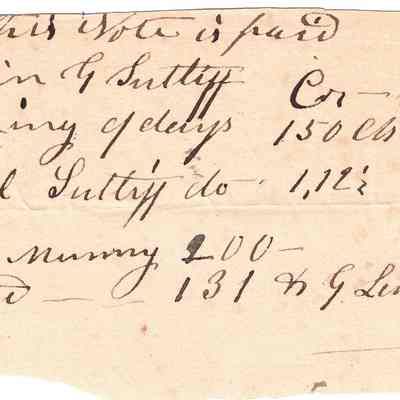 This Note is paid
in G Suttiff Cr
ing 9 days 150 Cts
l Suttiff do 1,12½
Munny 200
131 & G